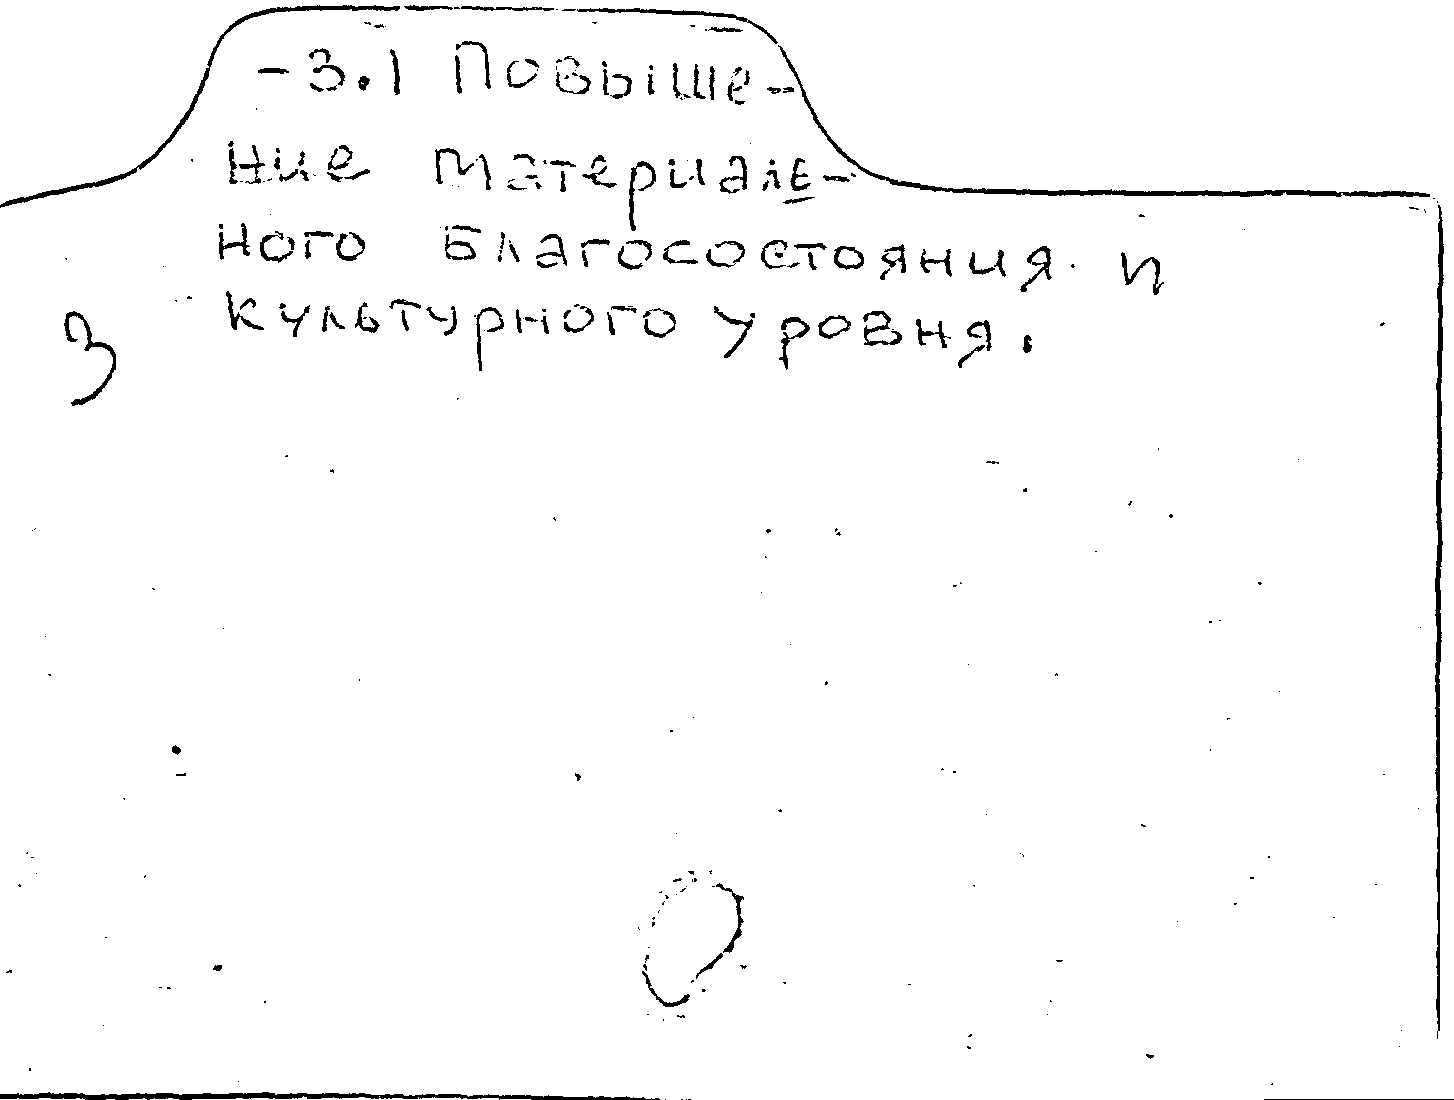 -3.1 Повыше-
ние материаль-
ного благосостояния и
культурного уровня.
3